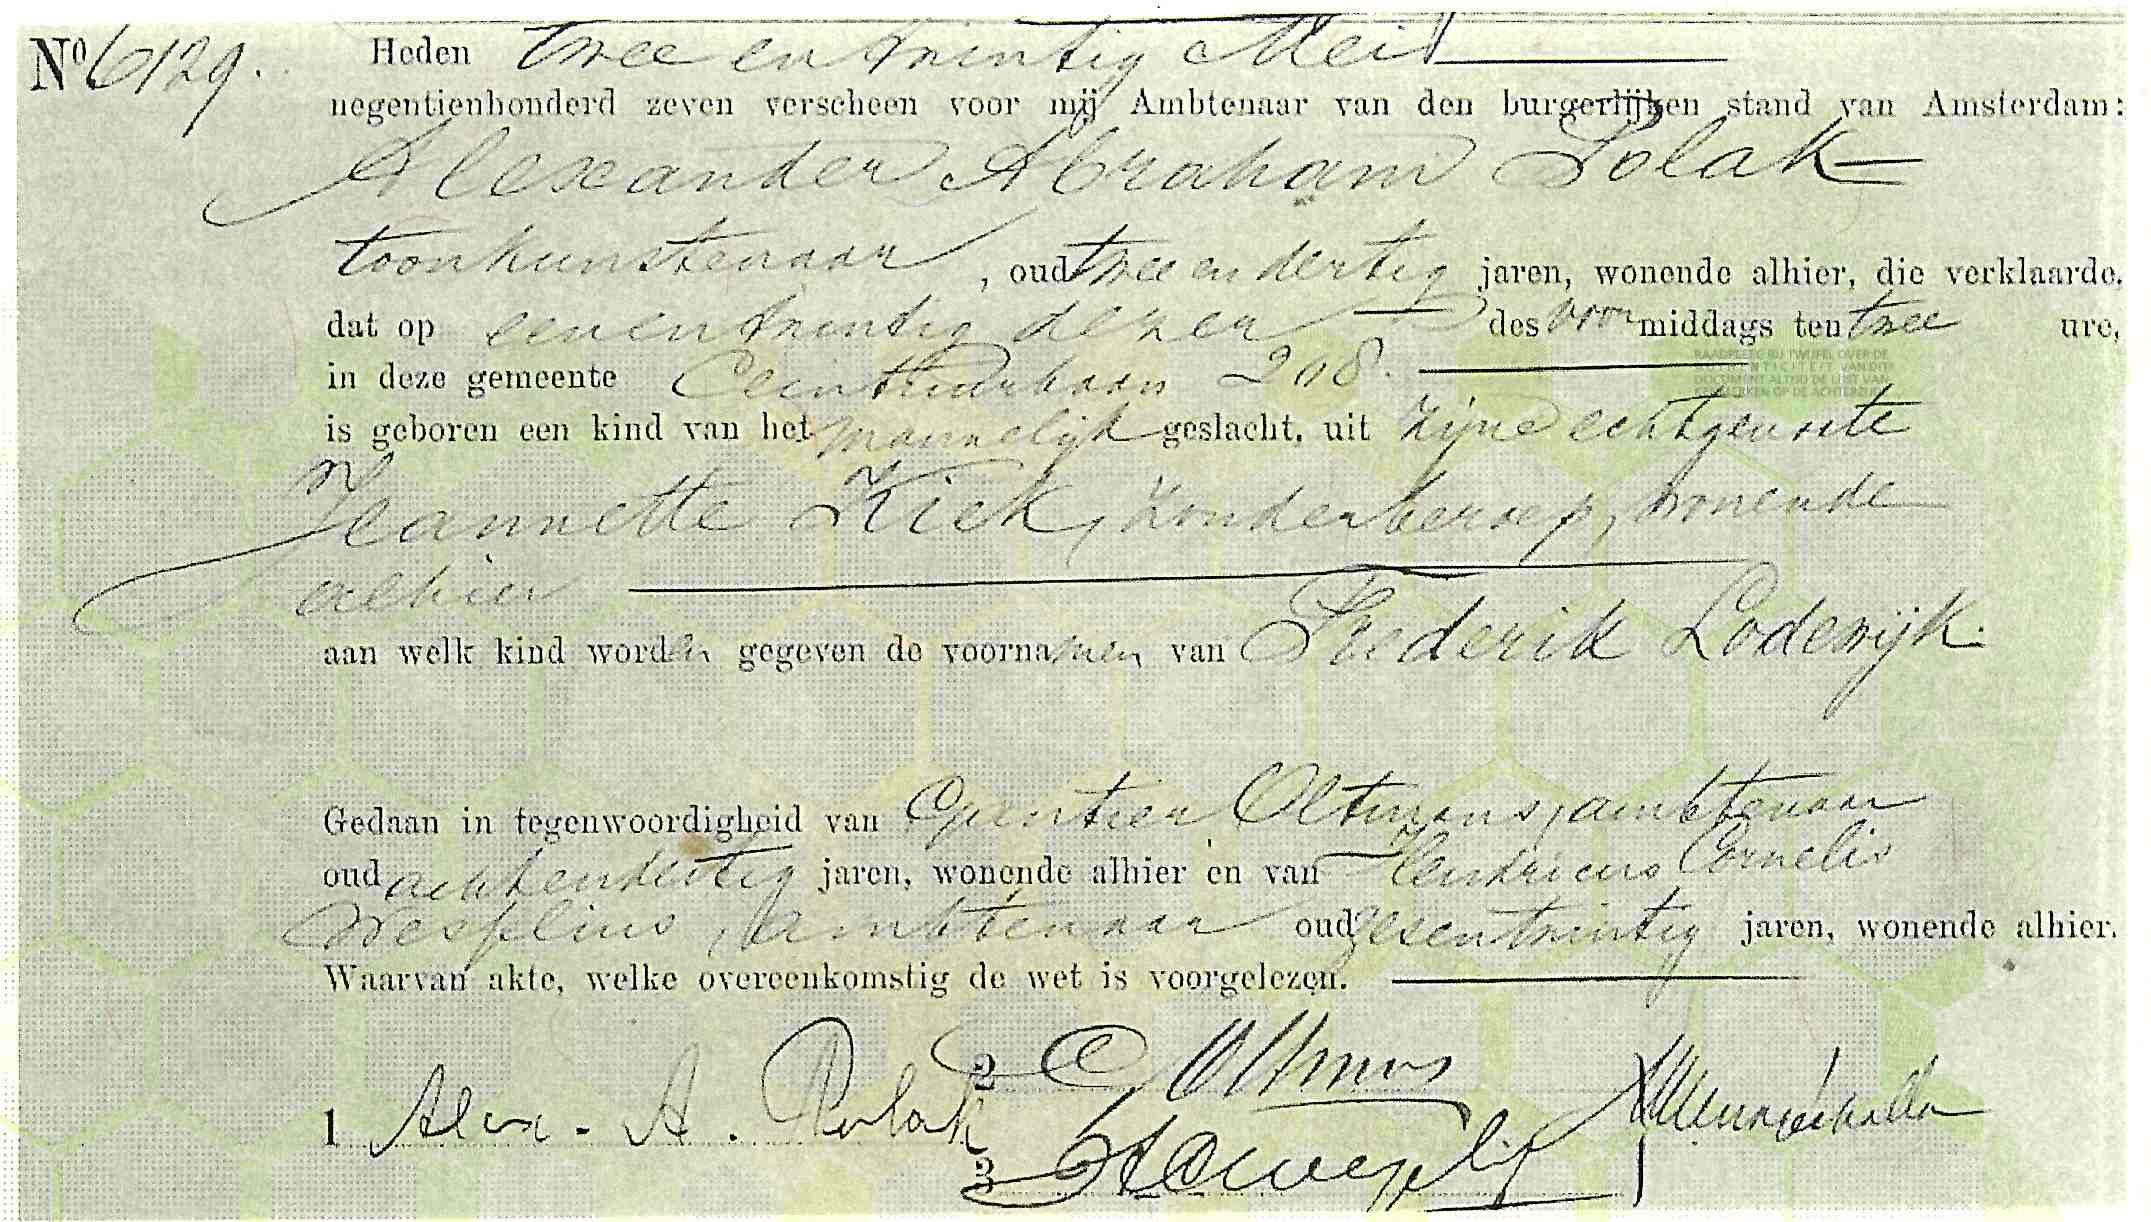 No 6129. Heden twee en twintig Mei
negentienhonderd zeven verscheen voor mij Ambtenaar van den burgerlijken stand van Amsterdam:
Alexander Abraham Polak
toonkunstenaar, oud twee en dertig jaren, wonende alhier, die verklaarde,
dat op een en twintig dezer des voormiddags ten twee ure,
in deze gemeente Ceintuurbaan 208.
RAADPLEEG BIJ TWIJFEL OVER DE
AUTHENTICITEIT VAN DIT
DOCUMENT ALTIJD DE LIJST VAN
KENMERKEN OP DE ACHTERZIJDE
is geboren een kind van het mannelijk geslacht, uit zijne echtgenoote
Jeannette Kiek, zonder beroep, wonende
alhier
aan welk kind worden gegeven de voornamen van Frederik Lodewijk.
Gedaan in tegenwoordigheid van Oltmans, ambtenaar
oud achtendertig jaren, wonende alhier en van Hendricus Cornelis
Wesselius, ambtenaar oud zesentwintig jaren, wonende alhier.
Waarvan akte, welke overeenkomstig de wet is voorgelezen.
1 Alex. A. Polak
2 C Oltmans
3